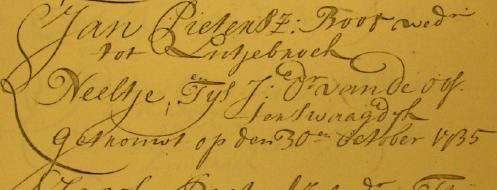 Jan Pietersz: Boos wedr
tot Lutjebroek
en
Neeltje Tys J: Dr van de Oos-
terswaagdyk
Getrouwt op den 30en October 1735